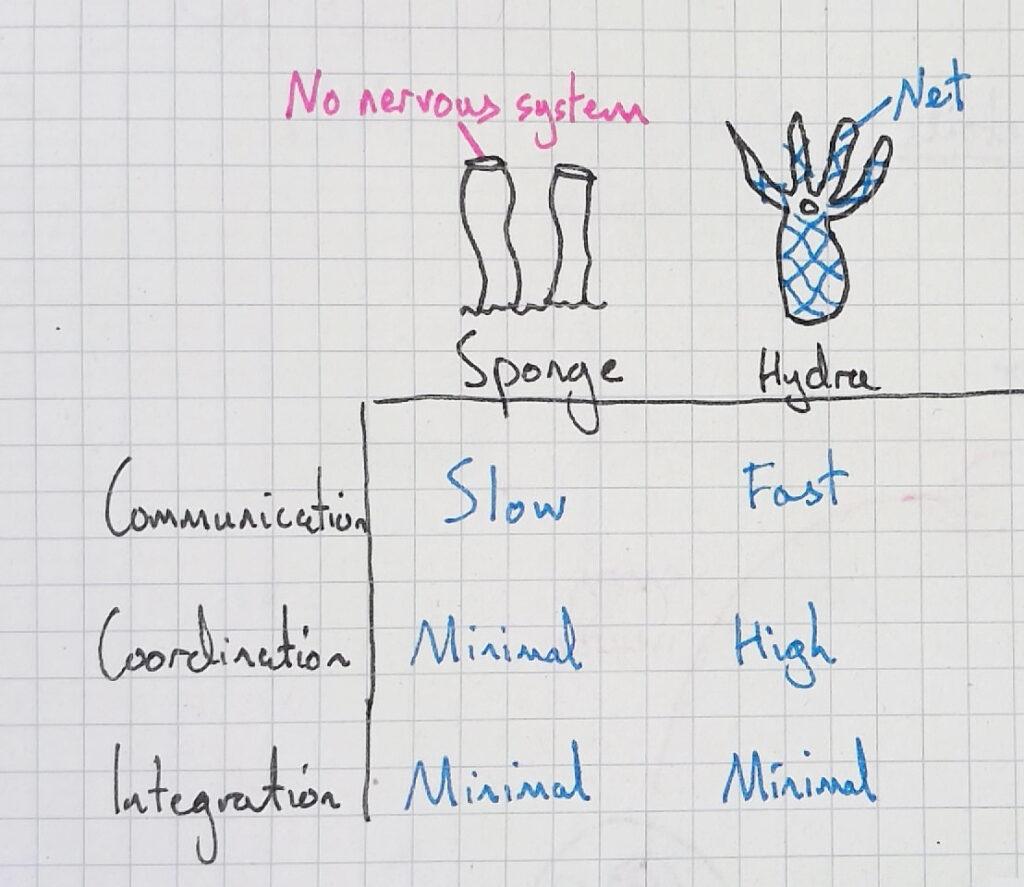 No nervous system
Net
Sponge Hydra
Communication Slow Fast
Coordination Minimal High
Integration Minimal Minimal